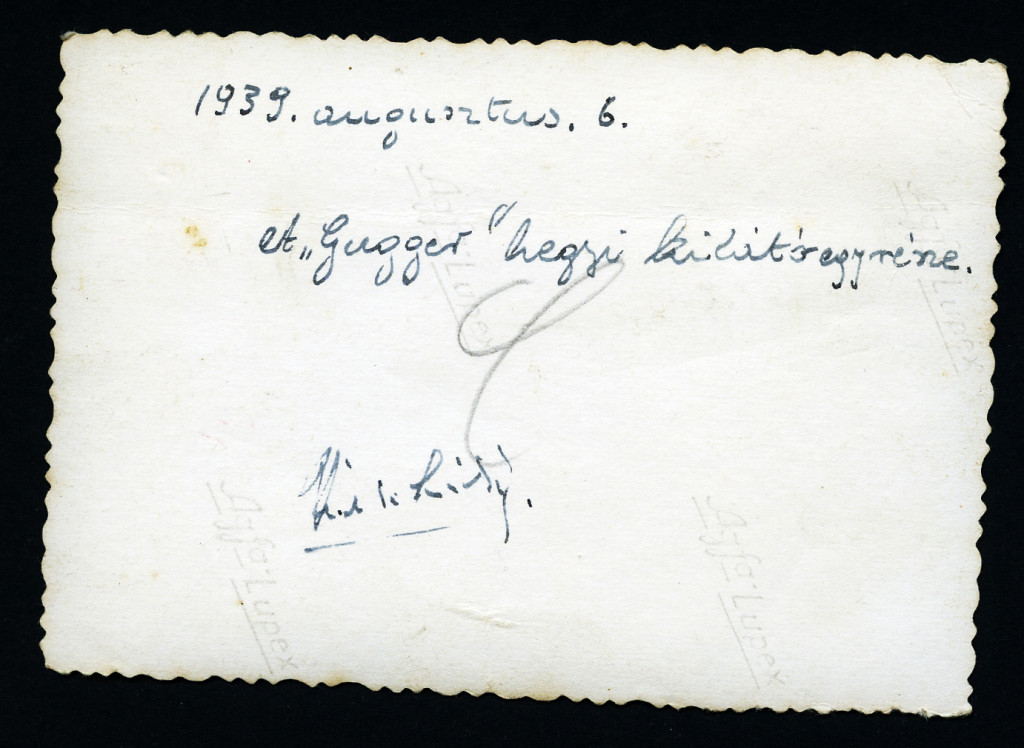 1939. augusztus. 6.
A „Gugger" hegyi kilátó egy része.
Agfa-Lupex
Agfa-Lupex
Agfa-Lupex
Agfa-Lupex